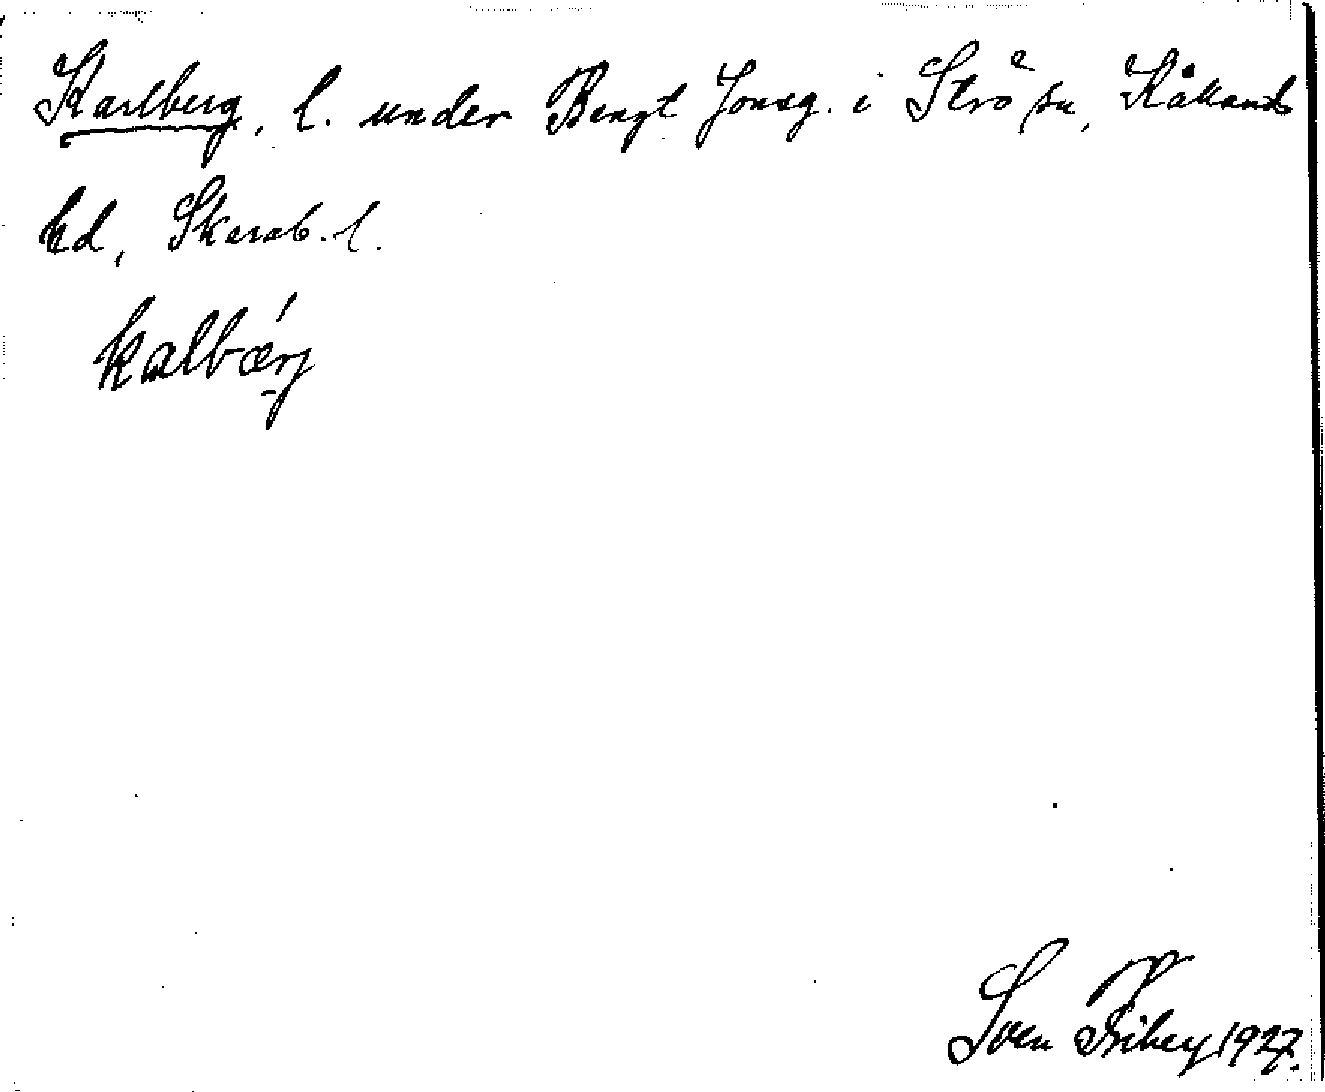 Karlberg, l. under Bengt Jonsg. i Strö sn, Kållands
hd, Skarab. l.
kalbærj
Sven Ribey 1927.